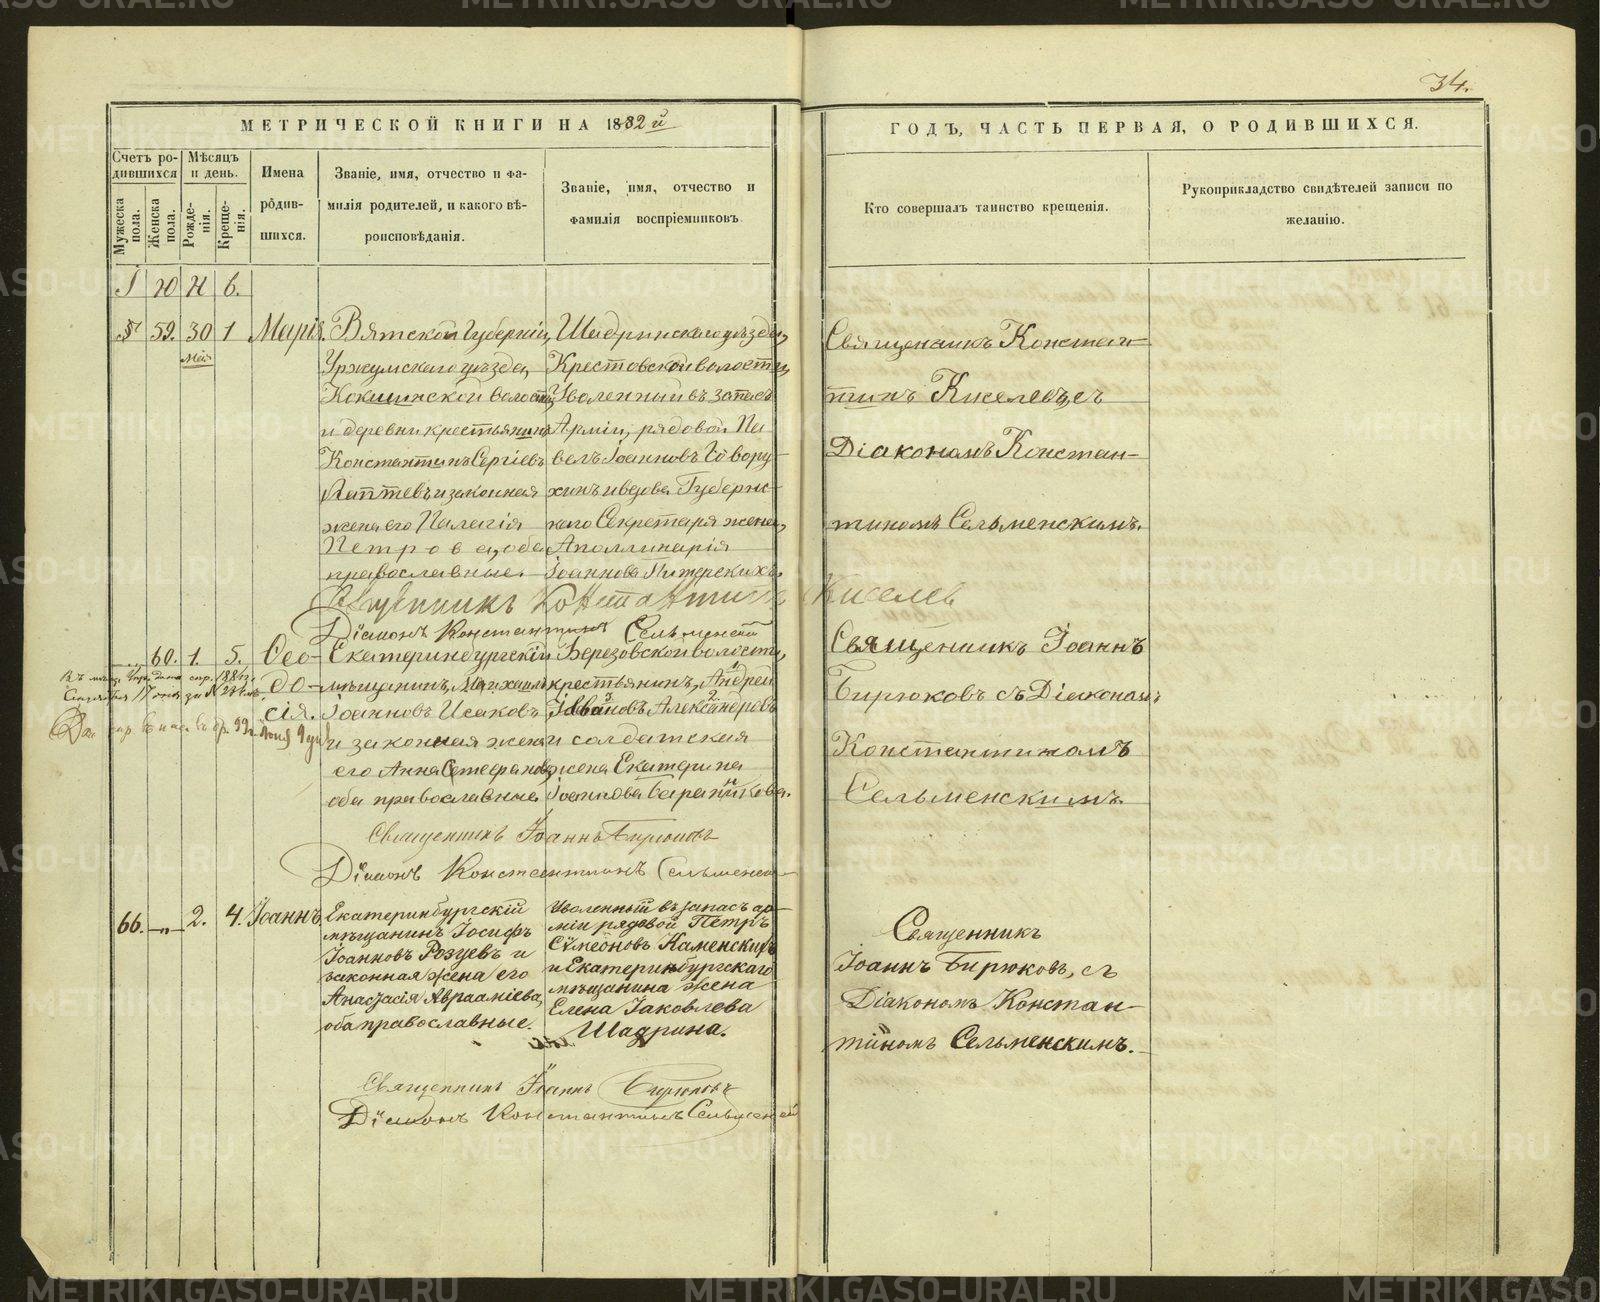 34.
МЕТРИЧЕСКОЙ КНИГИ НА 1882й
ГОДЪ, ЧАСТЬ ПЕРВАЯ, О РОДИВШИХСЯ.
Счетъ ро-
дившихся
Мѣсяцъ
и день.
Мужеска
пола.
Женска
пола.
Рожде-
нія.
Креще-
нія.
Имена
родив-
шихся.
Званіе, имя, отчество и фа-
милія родителей, и какого вѣ-
роисповѣданія.
Званіе, имя, отчество и
фамилія воспріемниковъ
Кто совершалъ таинство крещенія.
Рукоприкладство свидѣтелей записи по
желанію.
І ю н в.
59. 30 1
Мая
Марія.
Вятской Губерніи,
Уржумскаго уѣзда,
Кокшинской волости,
и деревни крестьянинъ
Константинъ Сергіевъ
Лаптевъ и законная
жена его Палагія
Петрова, оба
православные.
Шадринскаго уѣзда,
Крестовской волости,
Уволенный въ запасъ
Арміи, рядовой Па
велъ Іоанновъ Говору-
хинъ и вдова Губернс-
каго Секретаря жена,
Аполлинарія
Іоаннова Питерскихъ.
Священникъ Констан-
тинъ Киселевъ, съ
Діакономъ Констан-
тиномъ Сельменскимъ.
Священникъ Константинъ Киселев
Діаконъ Константинъ Сельменскій
60. 1. 5.
Ѳео-
до-
сія.
Екатеринбургскій
мѣщанинъ, Михаилъ
Іоанновъ Исаковъ
и законная жена
его Анна Стефановна,
оба православные
Березовской волости,
крестьянинъ, Андрей
Ивановъ Александровъ
и солдатская
жена Екатерина
Іоаннова Баранникова.
Священникъ Іоаннъ
Бирюковъ съ Діакономъ
Константиномъ
Сельменскимъ.
Священникъ Іоаннъ Бирюковъ
Діаконъ Константинъ Сельменскій
66. — 2. 4.
Іоаннъ.
Екатеринбургскій
мѣщанинъ Іосифъ
Іоанновъ Розцевъ и
законная жена его
Анастасія Авраамiева,
оба православные.
Уволенный въ запасъ ар-
міи рядовой Петръ
Сумеоновъ Каменскихъ
и Екатеринбургскаго
мѣщанина жена
Елена Іаковлева
Шадрина.
Священникъ
Іоаннъ Бирюковъ, съ
Діакономъ Констан-
тиномъ Сельменскимъ.
Священникъ Іоаннъ Бирюковъ
Діаконъ Константинъ Сельменскій
METRIKI.GASO-URAL.RU